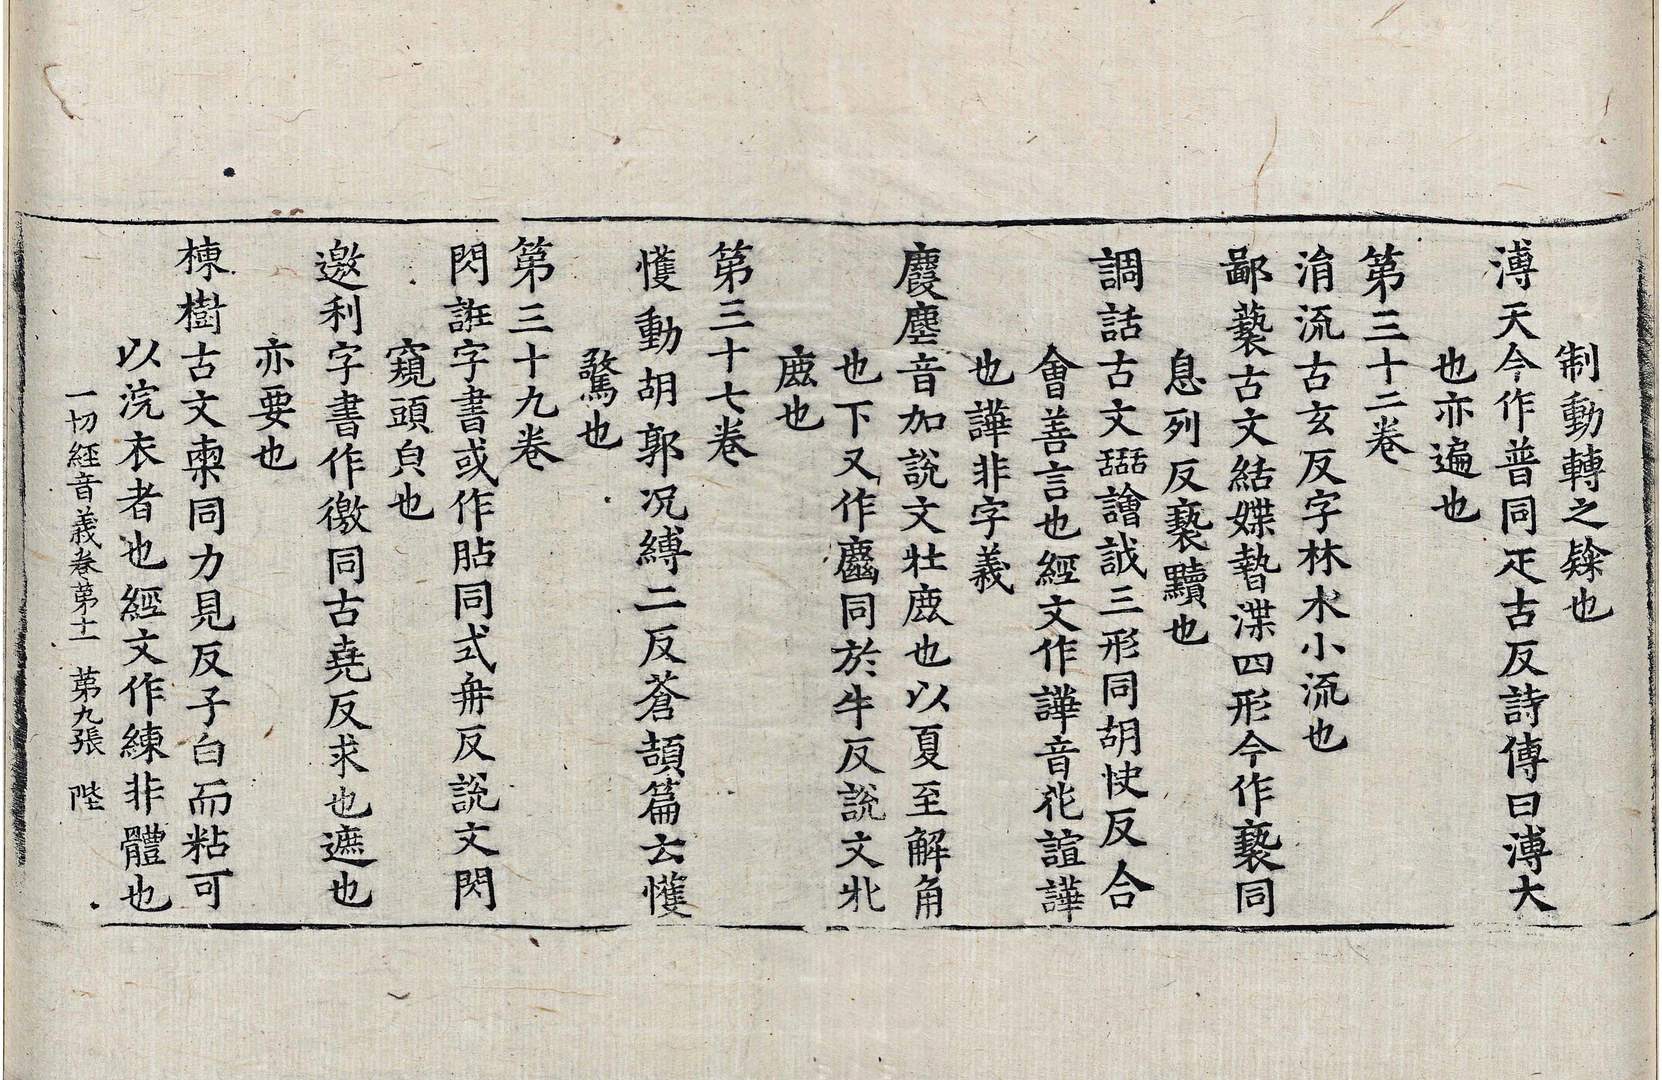 制動轉之鎳也
溥天今作普同疋古反詩傳曰溥大
也亦遍也
第三十二卷
涓流古玄反字林水小流也
鄙藝古文結媟暬渫四形今作褻同
息列反褻黷也
調話古文䛡譮𧧷三形同胡快反合
會善言也經文作譁音花諠譁
也譁非字義
麚塵音加說文壯鹿也以夏至解角
也下又作麤同於牛反說文牝
鹿也
第三十七卷
㦜動胡郭况縛二反蒼頡篇云㦜
驚也
第三十九卷
閃誑字書或作䀡同式冉反說文閃
窺頭皃也
邀利字書作徼同古堯反求也遮也
亦要也
楝樹古文𣐹同力見反子白而粘可
以浣衣者也經文作練非體也
一切經音義卷第十一 第九張 陛